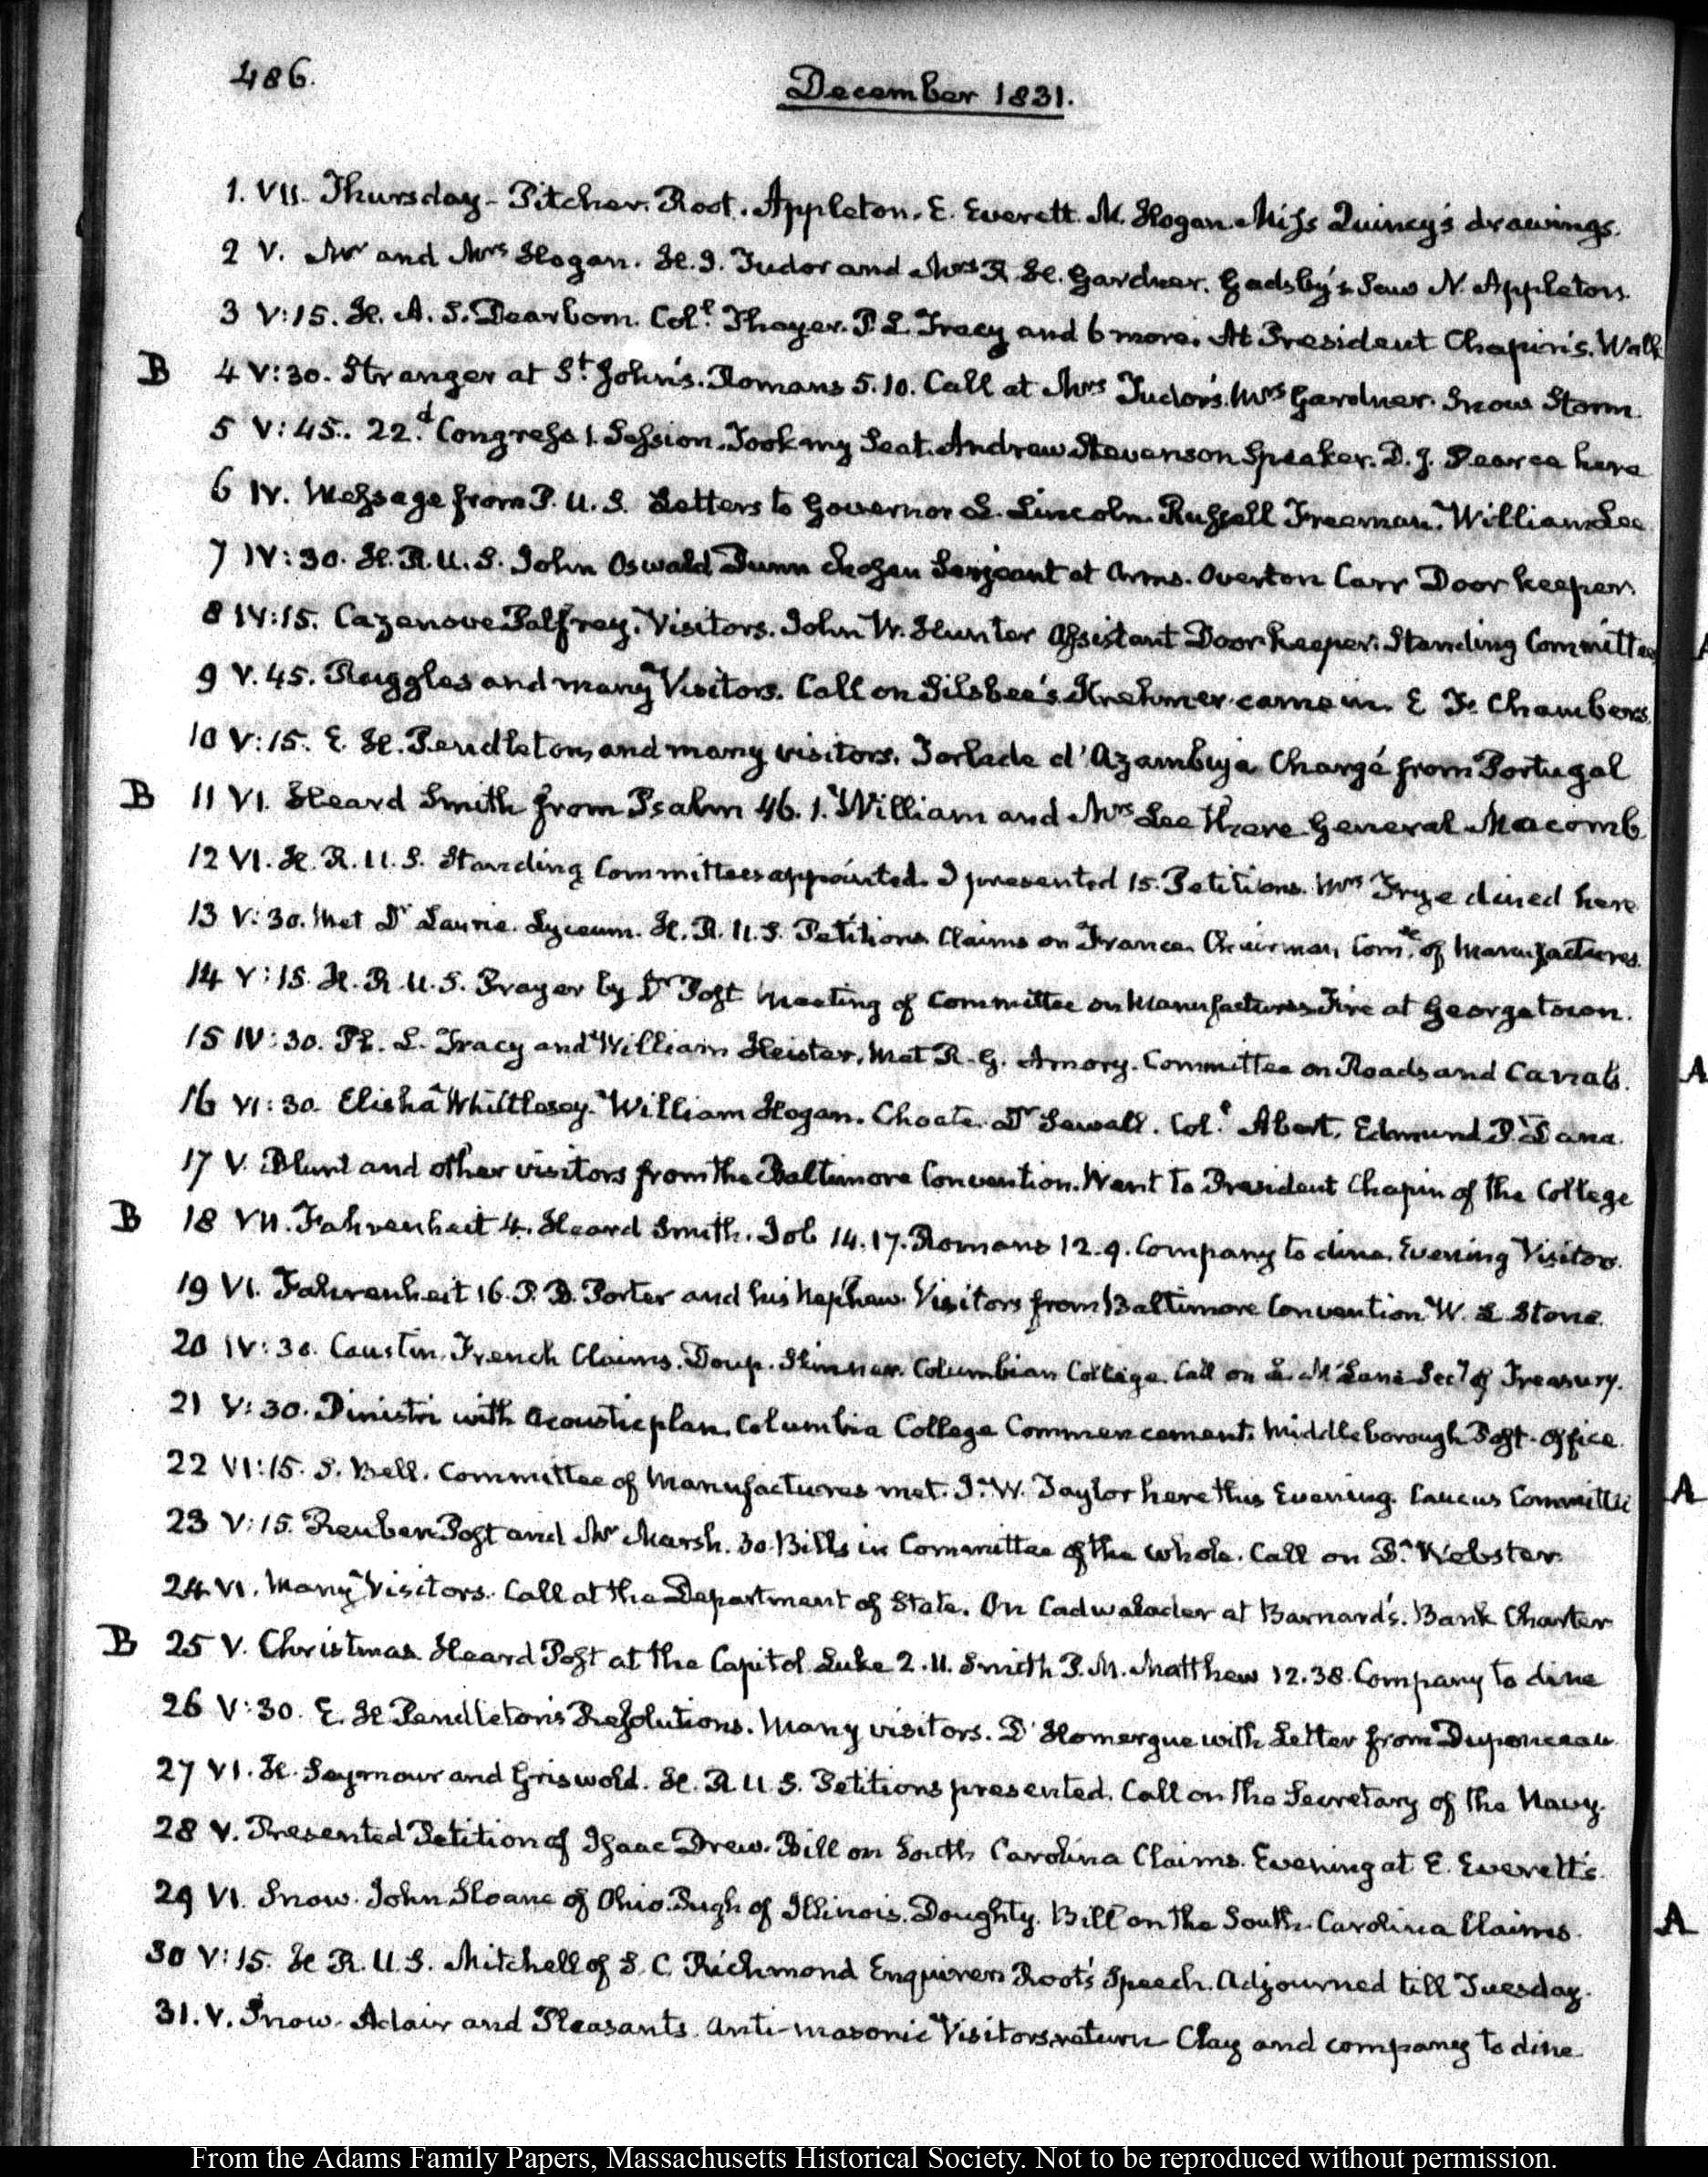 486.
December 1831.
1. VII. Thursday - Pitcher. Root. Appleton. E. Everett. M. Hogan. Miss Quincy's drawings.
2 V. Mr and Mrs Hogan. H. J. Tudor and Mrs R H. Gardner. Gadsby's. Saw N. Appleton.
3 V:15. H. A. S. Dearborn. Coll. Thayer. P. L. Tracy and 6 more. At President Chapin's. Walk
B 4 V:30. Stranger at St. John's. Romans 5.10. Call at Mrs Tudor's. Mrs Gardner. Snow Storm.
5 V:45. 22.d Congress 1. Session. Took my Seat. Andrew Stevenson Speaker. D. J. Pearce here
6 IV. Message from P. U. S. Letters to Governor L. Lincoln. Russell Freeman. William Lee
7 IV:30. H. R. U. S. John Oswald Dunn chosen Serjeant at Arms. Overton Carr Door keeper.
8 IV:15. Cazenove Palfrey. Visitors. John W. Hunter Assistant Door-keeper. Standing Committees
9 V. 45. Ruggles and many Visitors. Call on Silsbee's. Krehmer came in. E F. Chambers.
10 V:15. E. H. Pendleton, and many visitors. Torlade d'Azambuja Chargé from Portugal
B 11 VI. Heard Smith from Psalm 46. 1. William and Mrs Lee there General Macomb
12 VI. H. R. U. S. Standing Committees appointed. I presented 15. Petitions. Mrs Frye dined here
13 V:30. Met Dr Laurie. Lyceum. H. R. U. S. Petitions Claims on France. Chairman, Com.ee of Manufactures.
14 V:15. H. R. U. S. Prayer by Dr Post Meeting of Committee on Manufactures Fire at Georgetown.
15 IV:30. Ph. L. Tracy and William Heister. Met R. G. Amory. Committee on Roads and Canals. A
16 VI:30. Elisha Whittlesey. William Hogan. Choate. Dr Sewall. Coll. Abert. Edmund P. Dana.
17 V. Blunt and other visitors from the Baltimore Convention. Went to President Chapin of the College
B 18 VII. Fahrenheit 4. Heard Smith. Job 14.17. Romans 12.9. Company to dine. Evening Visitors.
19 VI. Fahrenheit 16. P. B. Porter and his Nephew. Visitors from Baltimore Convention. W. L. Stone.
20 IV:30. Caustin. French Claims. Doup. Skinner. Columbian College. Call on L. McLane Secy of Treasury.
21 V:30. Dinistri with Acoustic plan. Columbia College Commencement. Middleborough Post-office.
22 VI:15. S. Bell. Committee of Manufactures met. J. W. Taylor here this Evening. Caucus Committee A
23 V:15. Reuben Post and Mr Marsh. 30 Bills in Committee of the whole. Call on D. Webster.
24 VI. Many Visitors. Call at the Department of State. On Cadwalader at Barnard's. Bank Charter
B 25 V. Christmas. Heard Post at the Capitol. Luke 2.11. Smith P. M. Matthew 12.38. Company to dine
26 V:30. E. H Pendleton's Resolutions. Many visitors. D'Homergue with Letter from Duponceau.
27 VI. H. Seymour and Griswold. H. R. U S. Petitions presented. Call on the Secretary of the Navy.
28 V. Presented Petition of Isaac Drew. Bill on South Carolina Claims. Evening at E. Everett's.
29 VI. Snow. John Sloane of Ohio. Pugh of Illinois. Doughty. Bill on the South Carolina Claims. A
30 V:15. H R. U. S. Mitchell of S. C. Richmond Enquirer. Root's Speech. Adjourned till Tuesday.
31. V. Snow. Adair and Pleasants. Anti-masonic Visitors. return Clay and company to dine
From the Adams Family Papers, Massachusetts Historical Society. Not to be reproduced without permission.